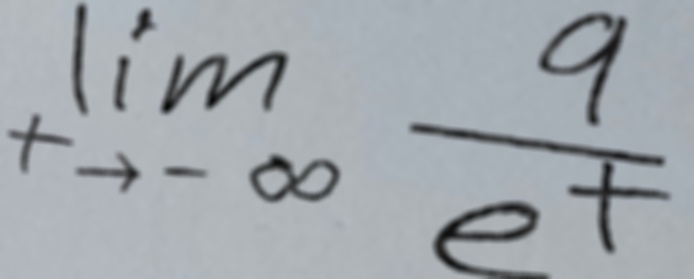 lim t→-∞ 9/e^t